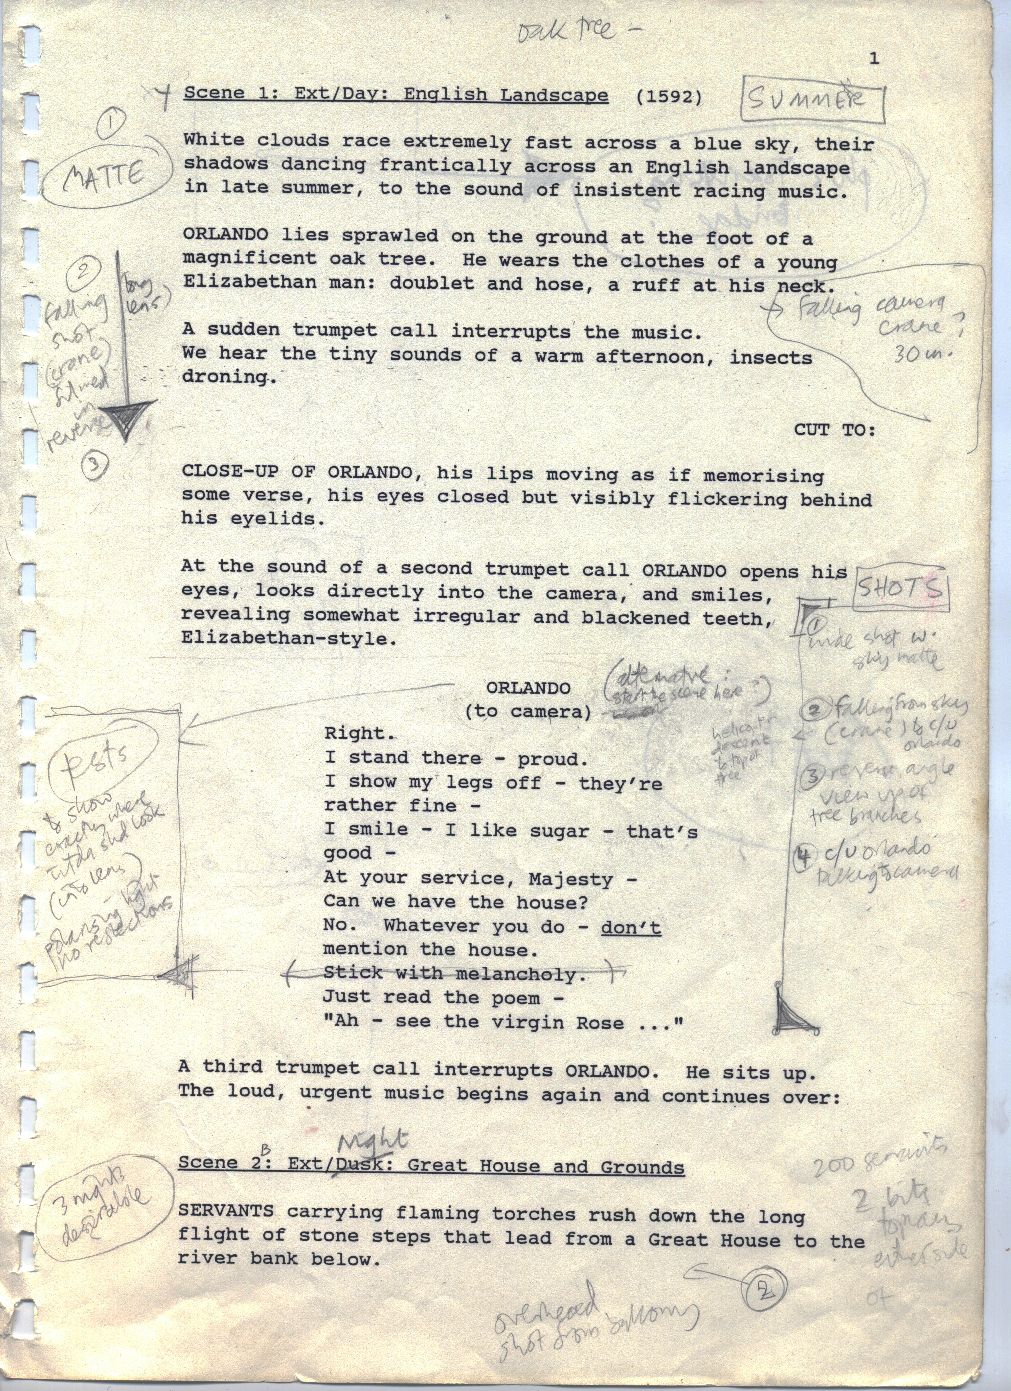 oak tree -
1
Scene 1: Ext/Day: English Landscape (1592)
SUMMER
1
MATTE
White clouds race extremely fast across a blue sky, their
shadows dancing frantically across an English landscape
in late summer, to the sound of insistent racing music.
ORLANDO lies sprawled on the ground at the foot of a
magnificent oak tree. He wears the clothes of a young
Elizabethan man: doublet and hose, a ruff at his neck.
2
falling
shot
(crane)
filmed
in
reverse
3
long
lens)
falling camera
crane?
30 m.
A sudden trumpet call interrupts the music.
We hear the tiny sounds of a warm afternoon, insects
droning.
CUT TO:
CLOSE-UP OF ORLANDO, his lips moving as if memorising
some verse, his eyes closed but visibly flickering behind
his eyelids.
At the sound of a second trumpet call ORLANDO opens his
eyes, looks directly into the camera, and smiles,
revealing somewhat irregular and blackened teeth,
Elizabethan-style.
SHOTS
1
wide shot w.
sky matte
2 falling from sky
(crane) to c/u
orlando
3 reverse angle
view up of
tree branches
4 c/u orlando
talking to camera
ORLANDO
(to camera)
(alternative:
start the scene here?)
helicopter
descent
to top of
tree
Right.
I stand there - proud.
I show my legs off - they're
rather fine -
I smile - I like sugar - that's
good -
At your service, Majesty -
Can we have the house?
No. Whatever you do - don't
mention the house.
Stick with melancholy.
Just read the poem -
"Ah - see the virgin Rose ..."
tests
to show
exactly where
tilda shd look
(into lens)
polarising light
no reflections
A third trumpet call interrupts ORLANDO. He sits up.
The loud, urgent music begins again and continues over:
Night
Scene 2B: Ext/Dusk: Great House and Grounds
3 nights
desirable
200 servants
2 bits
either side
of
SERVANTS carrying flaming torches rush down the long
flight of stone steps that lead from a Great House to the
river bank below.
2
overhead
shot from balcony